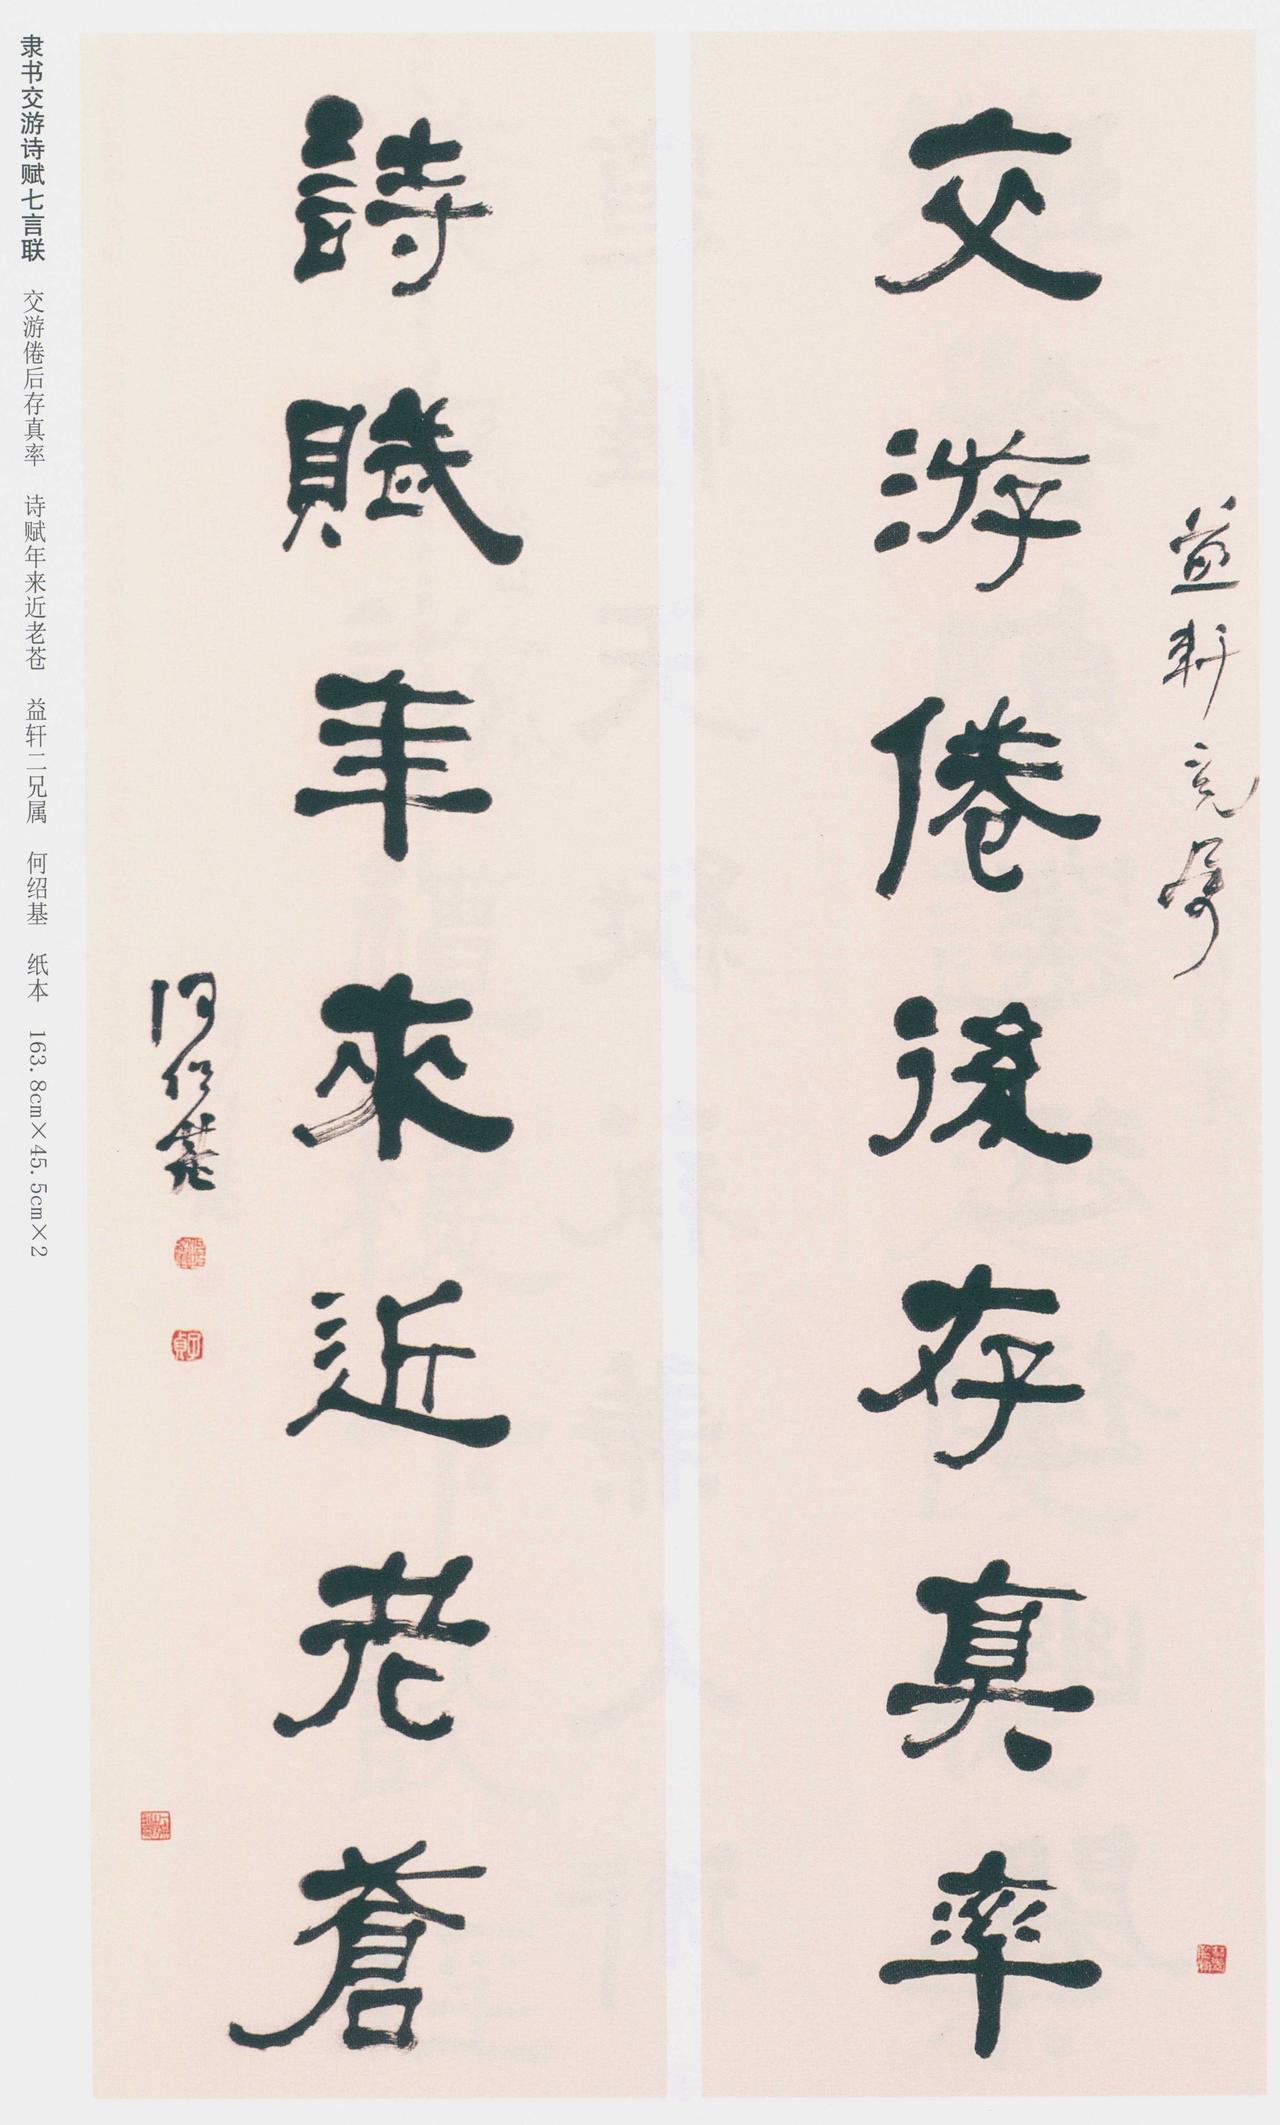 益軒二兄属
交游倦後存真率
詩賦年來近老蒼
何紹基
子貞
隶书交游诗赋七言联 交游倦后存真率 诗赋年来近老苍 益轩二兄属 何绍基 纸本 163.8cm×45.5cm×2